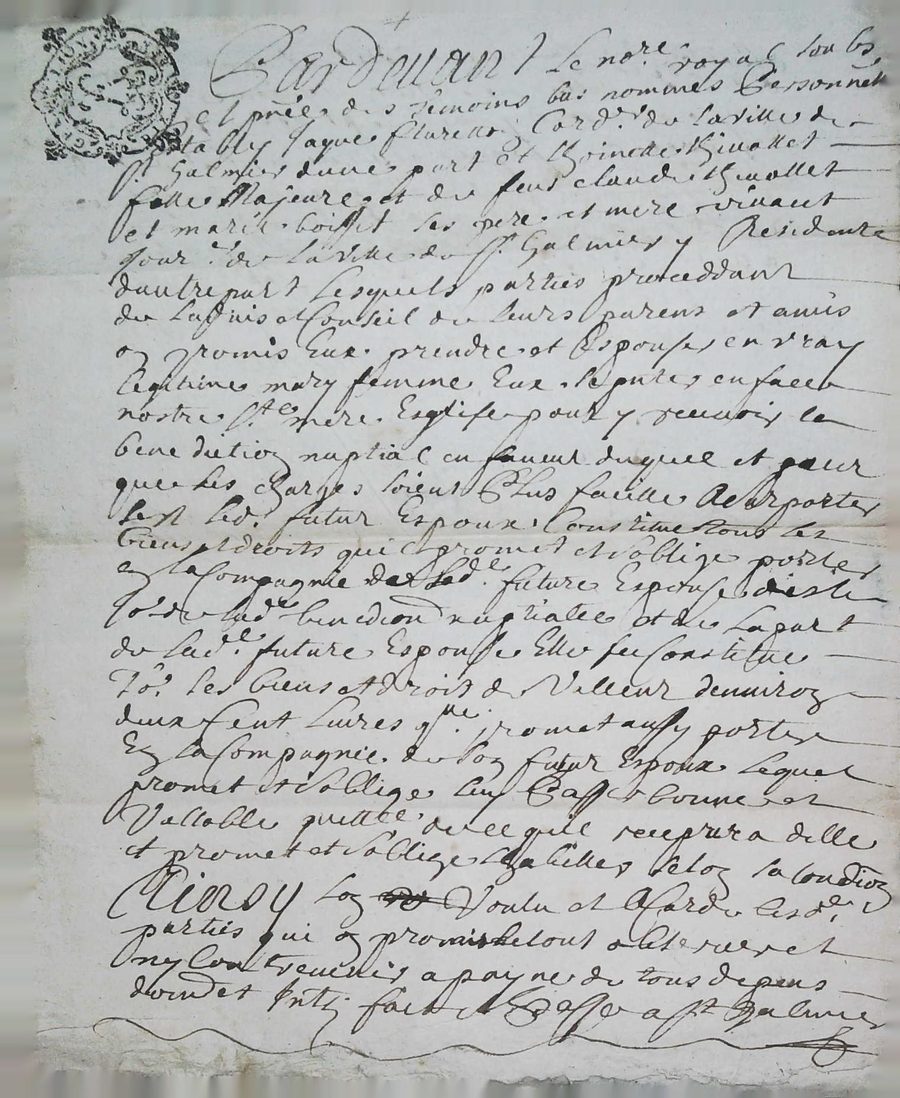 Pardevant Le no.re royal soubs.
et pnce des temoins bas nommés Personnell
Estably Jaque Cord.r de la ville de
S.t Galmier dune part Et thoinette thivollet
fille Majeure et de feus claude thivollet
et marie boisset les pere et mere vivant
Jour.r de la ville de S.t Galmier y Residente
dautre part Lesquels parties proceddant
de Ladvis et Conseil de leurs parens et amis
on promis Eux prendre et Espouser en vray
legitime mary femme Eux en face
nostre S.te mere Esglise pour y recevoir la
benediction nuptial en faveur duquel et pour
que les charges soient Plus facille a suporter
led. futur Espoux Constitue tous les
biens et droits quil promet et soblige porter
en la Compagnie de lad.e future Espouse
Jo.r de lad.e benedion nuptialle et de La part
de lad.e future Espouse Elle se Constitue
les biens et droit de Valleur denviron
deux Cent Livres que promet aussy porter
En la Compagnie de son futur Espoux Lequel
promet et soblige luy Passer bonne et
Vallable quitte de ce quil recepvra delle
et promet et soblige Lhabiller selon sa condi.on
Ainsy lon Voulu et acordé lesd.
parties qui on promis le tout observer et
ny Contrevenir a payne de tous depens
fait et Passé a S.t Galmier